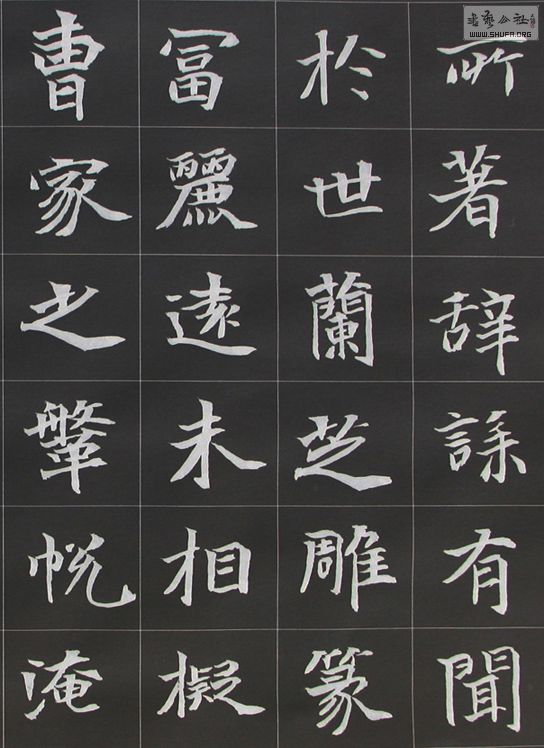 書藝公社
WWW.SHUFA.ORG
所著辞有聞
於世蘭芝雕篆
冨麗遠未相擬
曹家之鞶帨淹